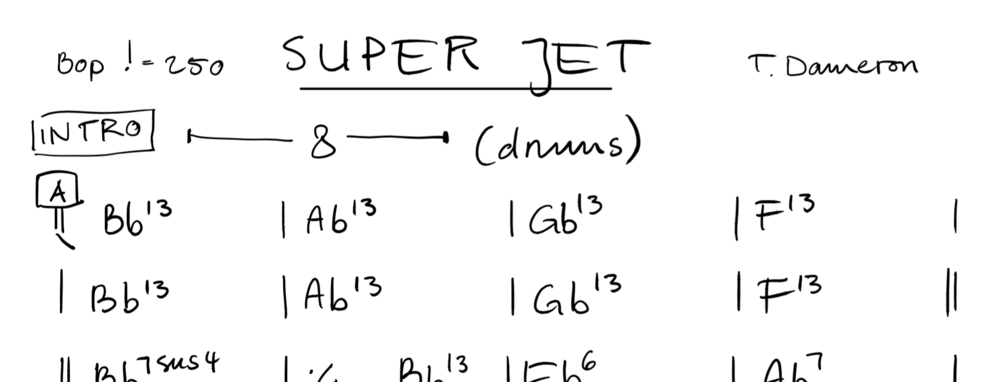 Bop ! = 250 SUPER JET T. Dameron
INTRO 8 (drums)
A
Bb13 | Ab13 | Gb13 | F13 |
| Bb13 | Ab13 | Gb13 | F13 ||
|| Bb7sus4 | % Bb13 | Eb6 | Ab7 |